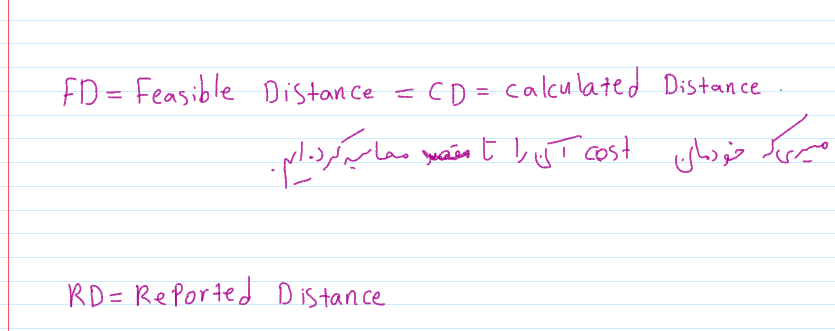 FD = Feasible Distance = CD = Calculated Distance.
مسیری که خودمان cost آن را تا مقصد محاسبه کرده‌ایم.
RD = Reported Distance